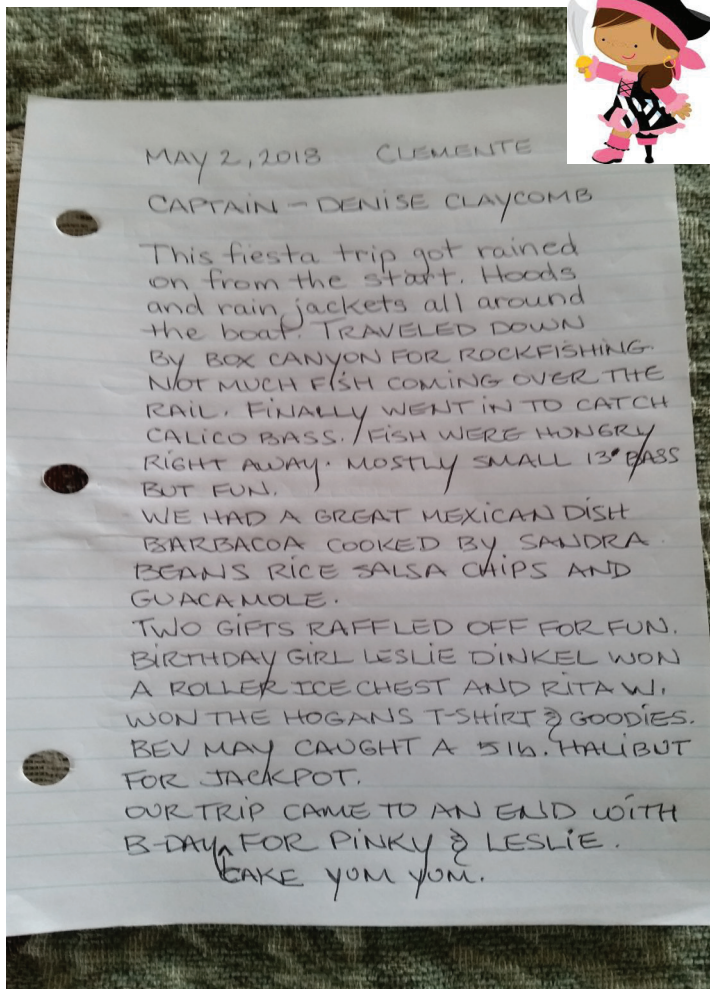 MAY 2, 2018 CLEMENTE
CAPTAIN - DENISE CLAYCOMB
This fiesta trip got rained
on from the start. Hoods
and rain jackets all around
the boat. TRAVELED DOWN
BY BOX CANYON FOR ROCKFISHING.
NOT MUCH FISH COMING OVER THE
RAIL. FINALLY WENT IN TO CATCH
CALICO BASS. FISH WERE HUNGRY
RIGHT AWAY. MOSTLY SMALL 13" BASS
BUT FUN.
WE HAD A GREAT MEXICAN DISH
BARBACOA COOKED BY SANDRA
BEANS RICE SALSA CHIPS AND
GUACAMOLE.
TWO GIFTS RAFFLED OFF FOR FUN.
BIRTHDAY GIRL LESLIE DINKEL WON
A ROLLER ICE CHEST AND RITA W.
WON THE HOGANS T-SHIRT & GOODIES.
BEV MAY CAUGHT A 5 lb. HALIBUT
FOR JACKPOT.
OUR TRIP CAME TO AN END WITH
B-DAY FOR PINKY & LESLIE.
CAKE YUM YUM.